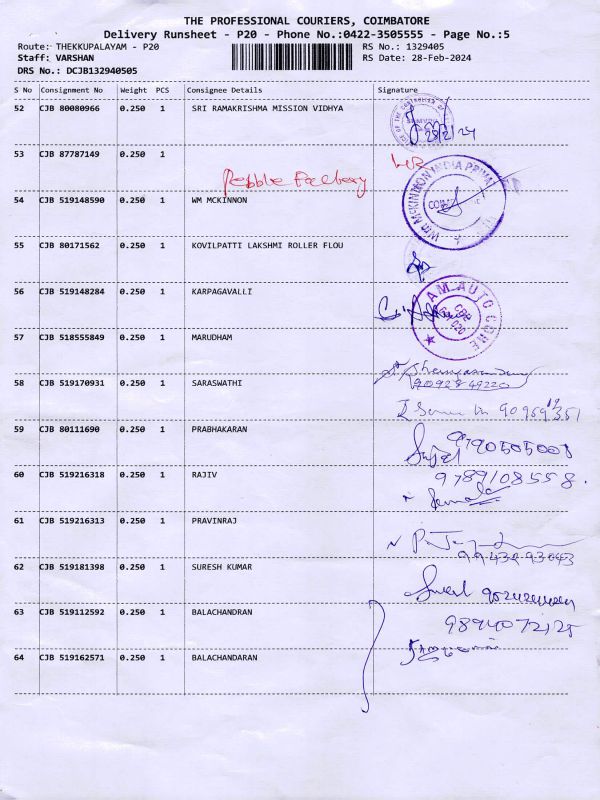 THE PROFESSIONAL COURIERS, COIMBATORE
Delivery Runsheet - P20 - Phone No.:0422-3505555 - Page No.:5
Route: THEKKUPALAYAM - P20 RS No.: 1329405
Staff: VARSHAN RS Date: 28-Feb-2024
DRS No.: DCJB132940505
S No Consignment No Weight PCS Consignee Details Signature
52 CJB 80080966 0.250 1 SRI RAMAKRISHMA MISSION VIDHYA
28/2/24
53 CJB 87787149 0.250 1
Pebble
54 CJB 519148590 0.250 1 WM MCKINNON
55 CJB 80171562 0.250 1 KOVILPATTI LAKSHMI ROLLER FLOU
56 CJB 519148284 0.250 1 KARPAGAVALLI
AM AUTO CORE
57 CJB 518555849 0.250 1 MARUDHAM
58 CJB 519170931 0.250 1 SARASWATHI
9092849220
59 CJB 80111690 0.250 1 PRABHAKARAN
9790505008
60 CJB 519216318 0.250 1 RAJIV
9789108558.
61 CJB 519216313 0.250 1 PRAVINRAJ
9943293043
62 CJB 519181398 0.250 1 SURESH KUMAR
63 CJB 519112592 0.250 1 BALACHANDRAN
9894072125
64 CJB 519162571 0.250 1 BALACHANDARAN